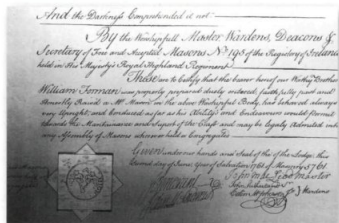 And the Darkness Comprehended it not
By the Worshipfull Master Wardens, Deacons &
Secretary of Free and Accepted Masons No 195 of the Registry of Ireland
held in His Majesty's Royal Highland Regiment
These are to Certify that the bearer hereof our Worthy Brother
William Forman was properly prepared duely entered, faithfully past and
Raised a Mr Mason in the above Worshipfull Body, has behaved always
very Upright, and conduced as far as his Ability's and Endeavours would Permit
towards the Maintainance and Support of the Craft and may be legaly Admitted into
any Assembly of Masons wherever held or Congregated
Given under our hands and Seal of the Lodge this
Second day of June, Year of Salvation 1761 & Masonry 5761
Master
Wardens